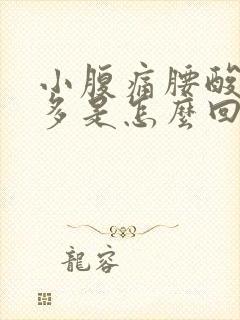 小腹痛腰酸
多是怎麼回
龍容